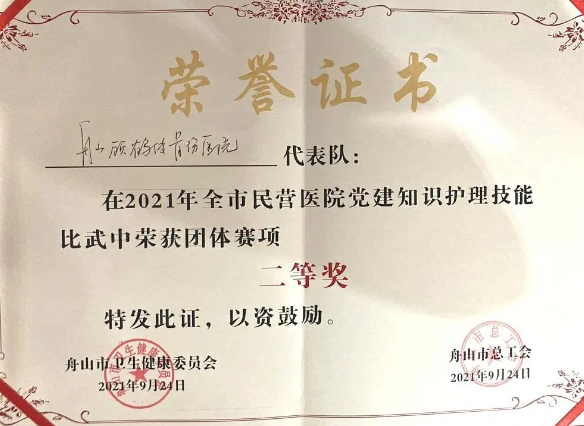 荣誉证书
舟山顾鹤林骨伤医院 代表队:
在2021年全市民营医院党建知识护理技能
比武中荣获团体赛项
二等奖
特发此证，以资鼓励。
舟山市卫生健康委员会
2021年9月24日
舟山市总工会
2021年9月24日